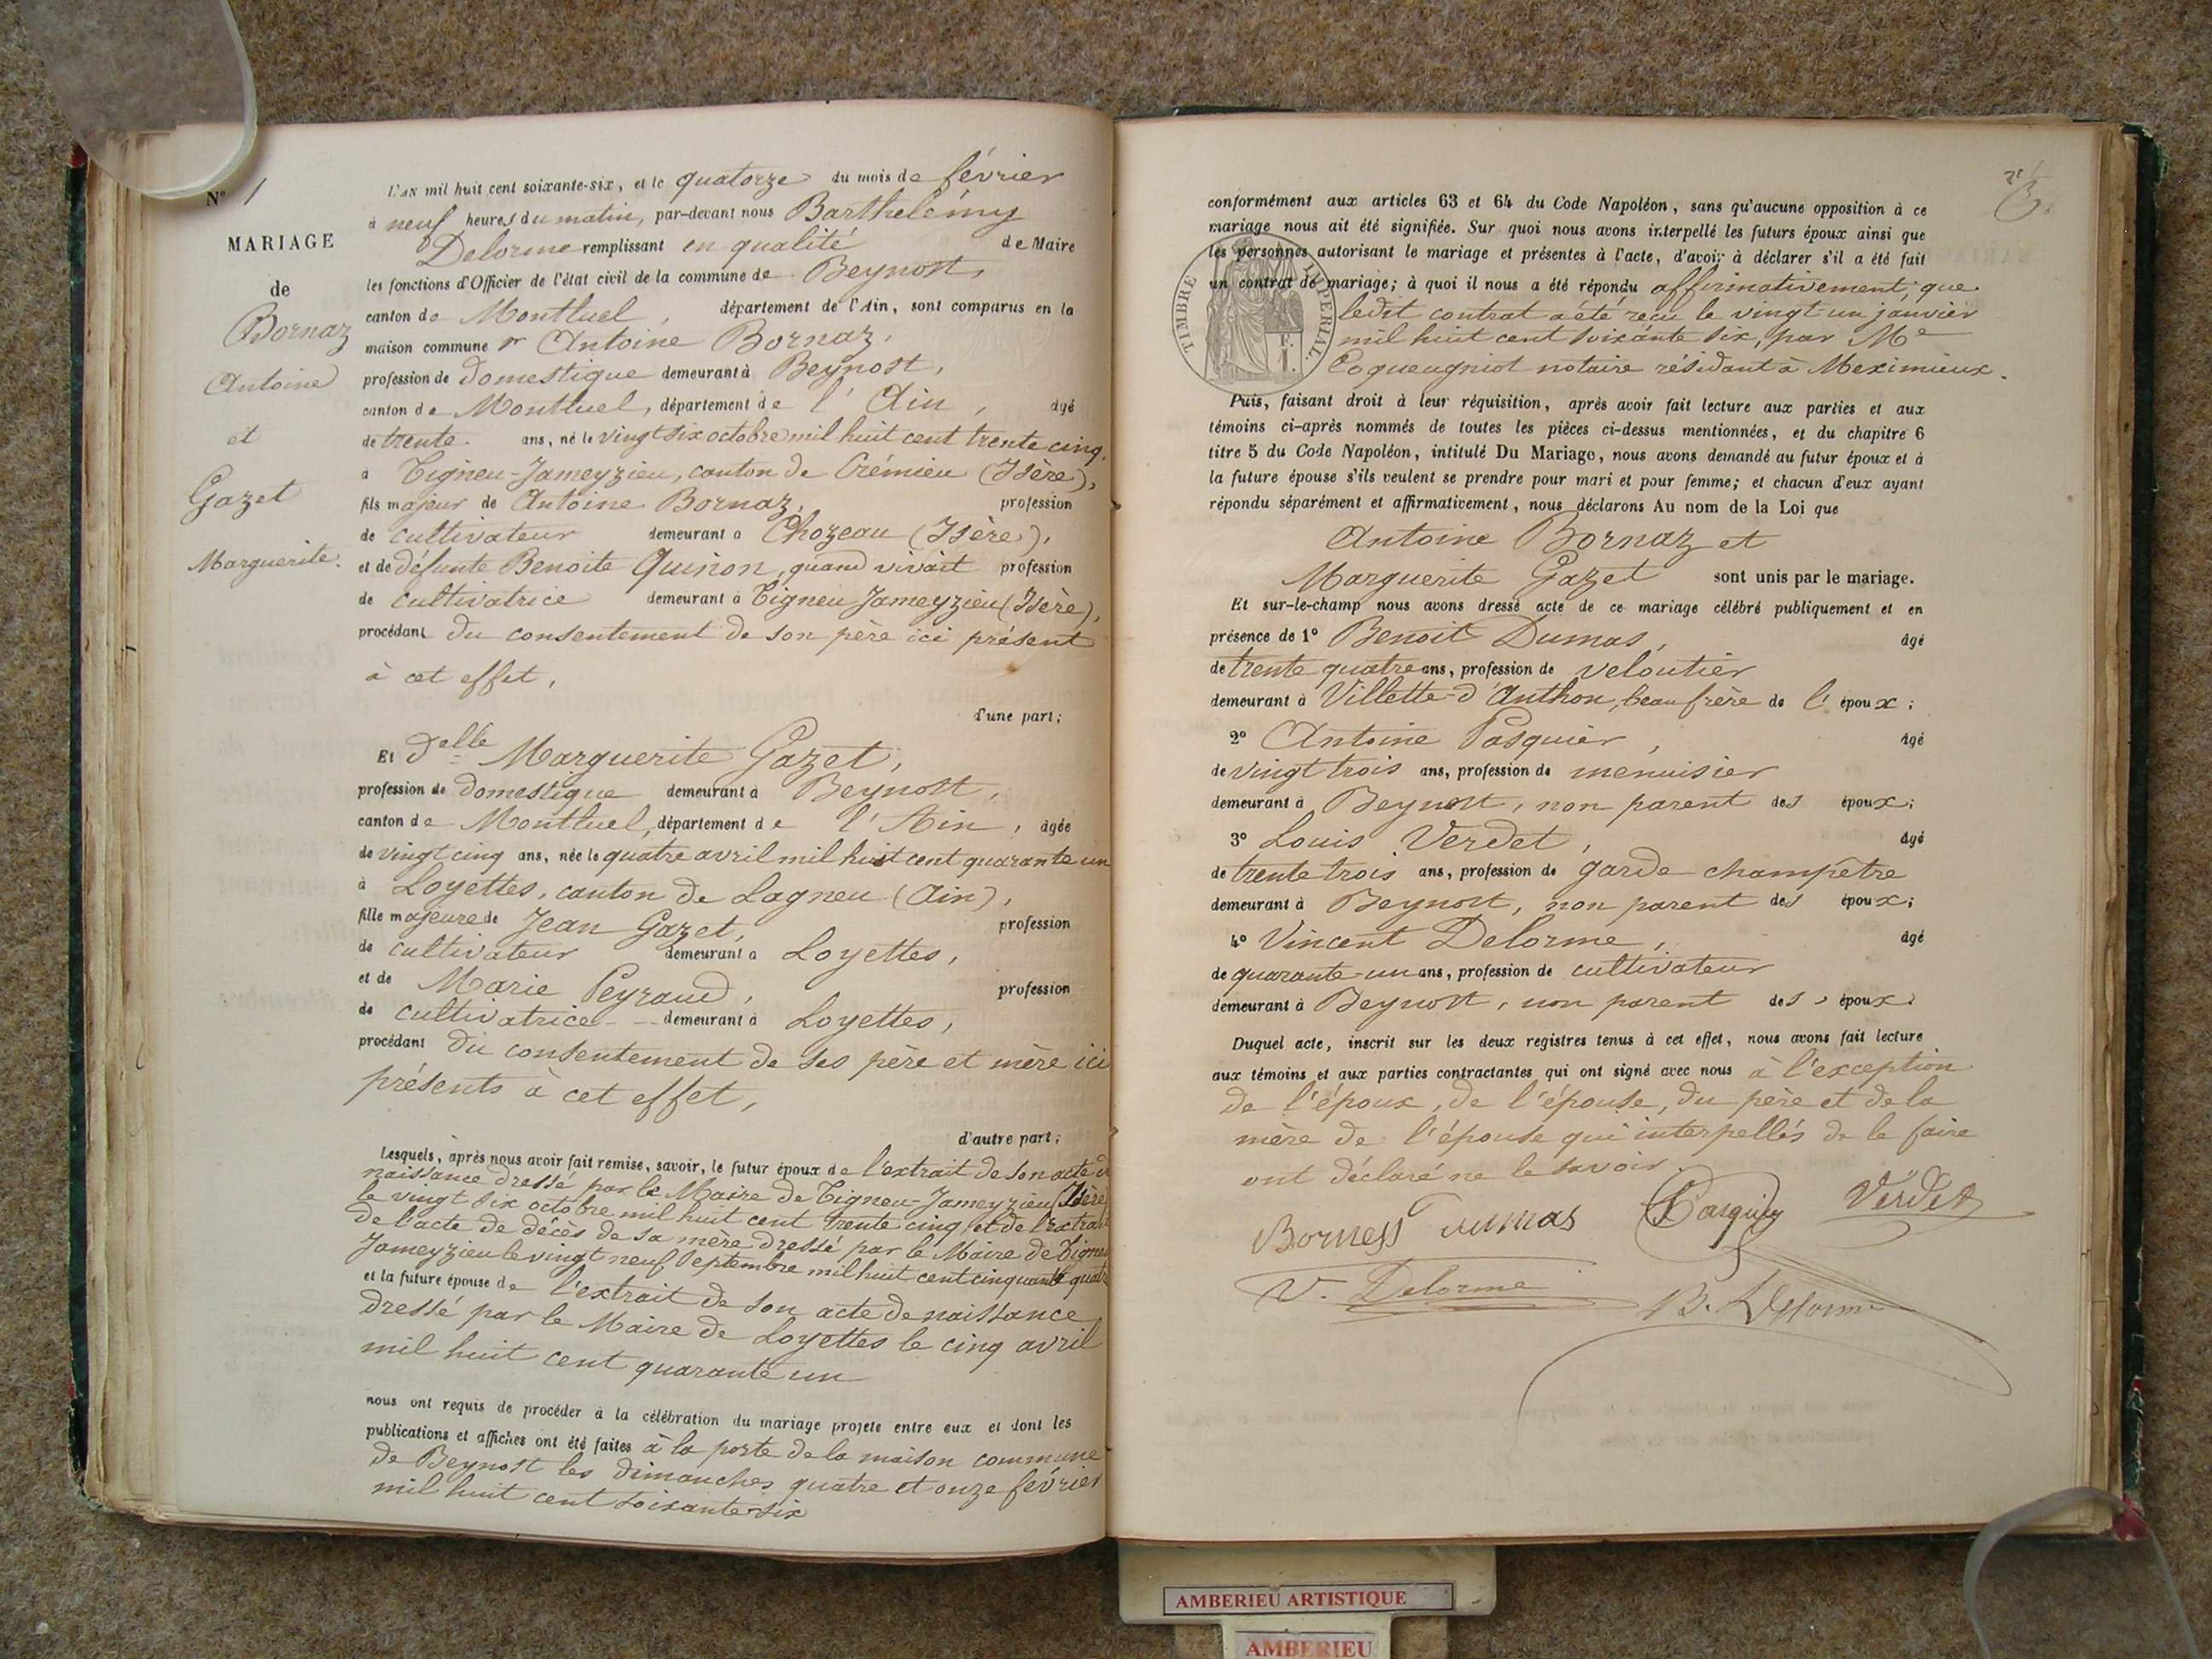 N° 1
MARIAGE
de
Bornaz
Antoine
et
Gazet
Marguerite.
L'AN mil huit cent soixante-six, et le quatorze du mois de février
à neuf heures du matin, par-devant nous Barthelémy
Delorme remplissant en qualité de Maire
les fonctions d'Officier de l'état civil de la commune de Beynost,
canton de Montluel, département de l'Ain, sont comparus en la
maison commune Sr Antoine Bornaz,
profession de domestique demeurant à Beynost,
canton de Montluel, département de l'Ain, âgé
de trente ans, né le vingt six octobre mil huit cent trente cinq,
à Tigneu-Jameyzieu, canton de Crémieu (Isère),
fils majeur de Antoine Bornaz, profession
de cultivateur demeurant à Chozeau (Isère),
et de défunte Benoite Quinon, quand vivait profession
de cultivatrice demeurant à Tigneu Jameyzieu (Isère),
procédant du consentement de son père ici présent
à cet effet,
d'une part;
Et Delle Marguerite Gazet,
profession de domestique demeurant à Beynost,
canton de Montluel, département de l'Ain, âgée
de vingt cinq ans, née le quatre avril mil huit cent quarante un
à Loyettes, canton de Lagneu (Ain),
fille majeure de Jean Gazet, profession
de cultivateur demeurant à Loyettes,
et de Marie Peyraud, profession
de cultivatrice demeurant à Loyettes,
procédant du consentement de ses père et mère ici
présents à cet effet,
d'autre part;
Lesquels, après nous avoir fait remise, savoir, le futur époux de l'extrait de son acte de
naissance dressé par le Maire de Tigneu-Jameyzieu (Isère)
le vingt six octobre mil huit cent trente cinq et de l'extrait
de l'acte de décès de sa mère dressé par le Maire de Tigneu
Jameyzieu le vingt neuf Septembre mil huit cent cinquante quatre
et la future épouse de l'extrait de son acte de naissance
dressé par le Maire de Loyettes le cinq avril
mil huit cent quarante un
nous ont requis de procéder à la célébration du mariage projeté entre eux et dont les
publications et affiches ont été faites à la porte de la maison commune
de Beynost les dimanches quatre et onze février
mil huit cent soixante six
conformément aux articles 63 et 64 du Code Napoléon, sans qu'aucune opposition à ce
mariage nous ait été signifiée. Sur quoi nous avons interpellé les futurs époux ainsi que
les personnes autorisant le mariage et présentes à l'acte, d'avoir à déclarer s'il a été fait
un contrat de mariage; à quoi il nous a été répondu affirmativement, que
ledit contrat a été reçu le vingt-un janvier
mil huit cent soixante six, par Me
Coqueugniot notaire résidant à Meximieux.
TIMBRE IMPERIAL.
Puis, faisant droit à leur réquisition, après avoir fait lecture aux parties et aux
témoins ci-après nommés de toutes les pièces ci-dessus mentionnées, et du chapitre 6
titre 5 du Code Napoléon, intitulé Du Mariage, nous avons demandé au futur époux et à
la future épouse s'ils veulent se prendre pour mari et pour femme; et chacun d'eux ayant
répondu séparément et affirmativement, nous déclarons Au nom de la Loi que
Antoine Bornaz et
Marguerite Gazet sont unis par le mariage.
Et sur-le-champ nous avons dressé acte de ce mariage célébré publiquement et en
présence de 1° Benoit Dumas, âgé
de trente quatre ans, profession de veloutier
demeurant à Villette-d'Anthon, beau frère de l'époux;
2° Antoine Pasquier, âgé
de vingt trois ans, profession de menuisier
demeurant à Beynost, non parent des époux;
3° Louis Verdet, âgé
de trente trois ans, profession de garde champêtre
demeurant à Beynost, non parent des époux;
4° Vincent Delorme, âgé
de quarante-un ans, profession de cultivateur
demeurant à Beynost, non parent des époux.
Duquel acte, inscrit sur les deux registres tenus à cet effet, nous avons fait lecture
aux témoins et aux parties contractantes qui ont signé avec nous à l'exception
de l'époux, de l'épouse, du père et de la
mère de l'épouse qui interpellés de le faire
ont déclaré ne le savoir.
Borness Dumas Pasquier Verdet
V. Delorme B. Delorme
AMBERIEU ARTISTIQUE
AMBERIEU